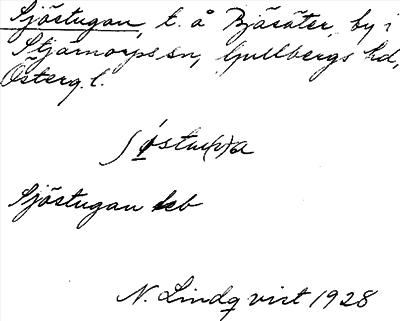 Sjöstugan, t. å Bjäsäter, by i
Stjärnorps sn, Gullbergs hd,
Österg. l.
ʃǿstu(v)a
Sjöstugan kb
N. Lindqvist 1928